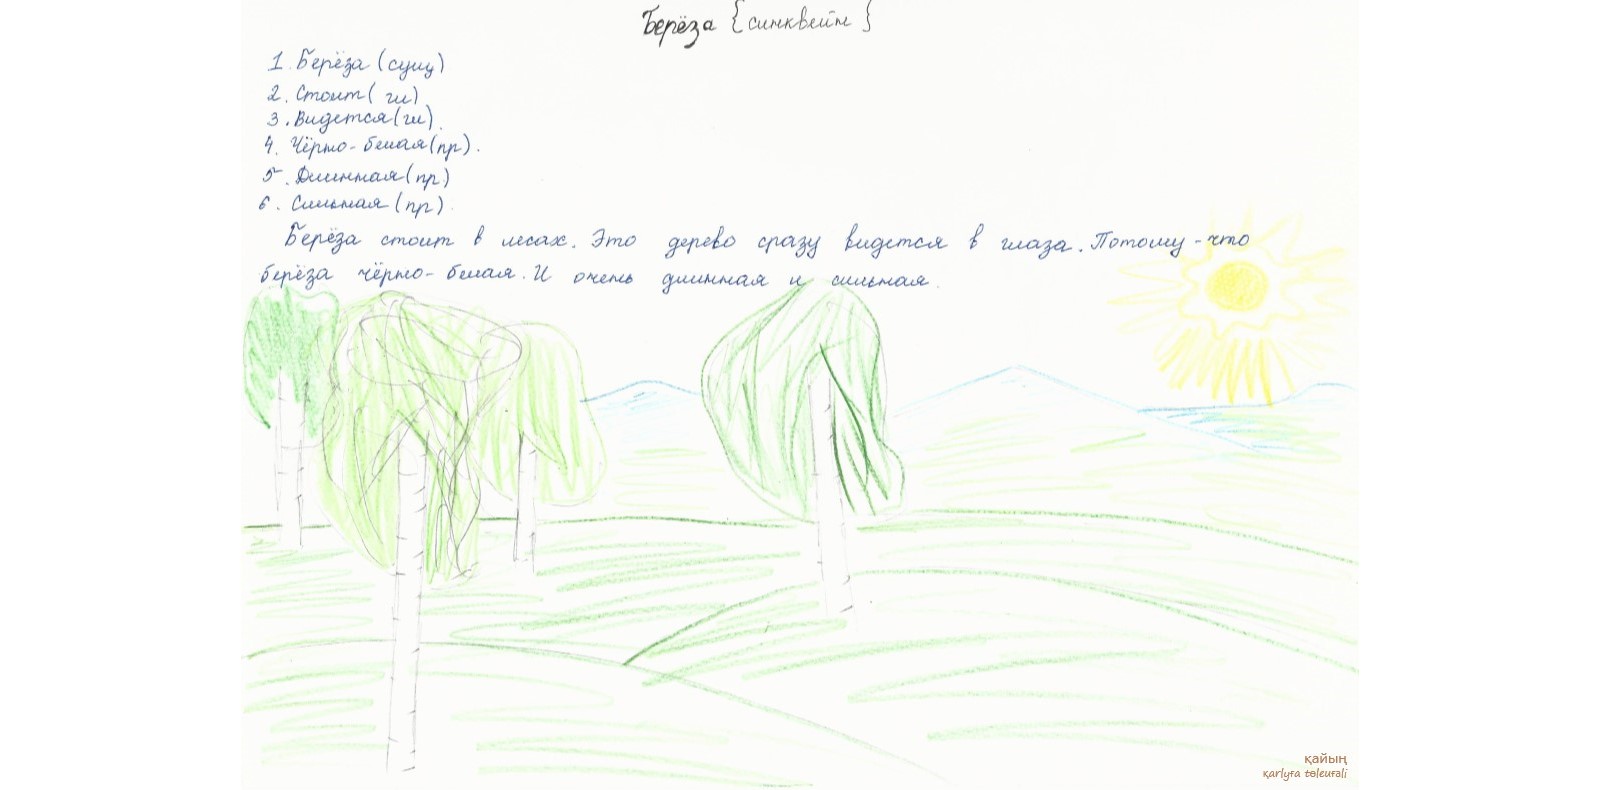 Берёза {синквейн}
1. Берёза (сущ)
2. Стоит ( гл)
3. Видется (гл).
4. Чёрно-белая (пр).
5. Длинная (пр)
6. Сильная (пр).
Берёза стоит в лесах. Это дерево сразу видется в глаза. Потому-что
берёза чёрно-белая. И очень длинная и сильная.
қайың
qarlyға tөleuғali